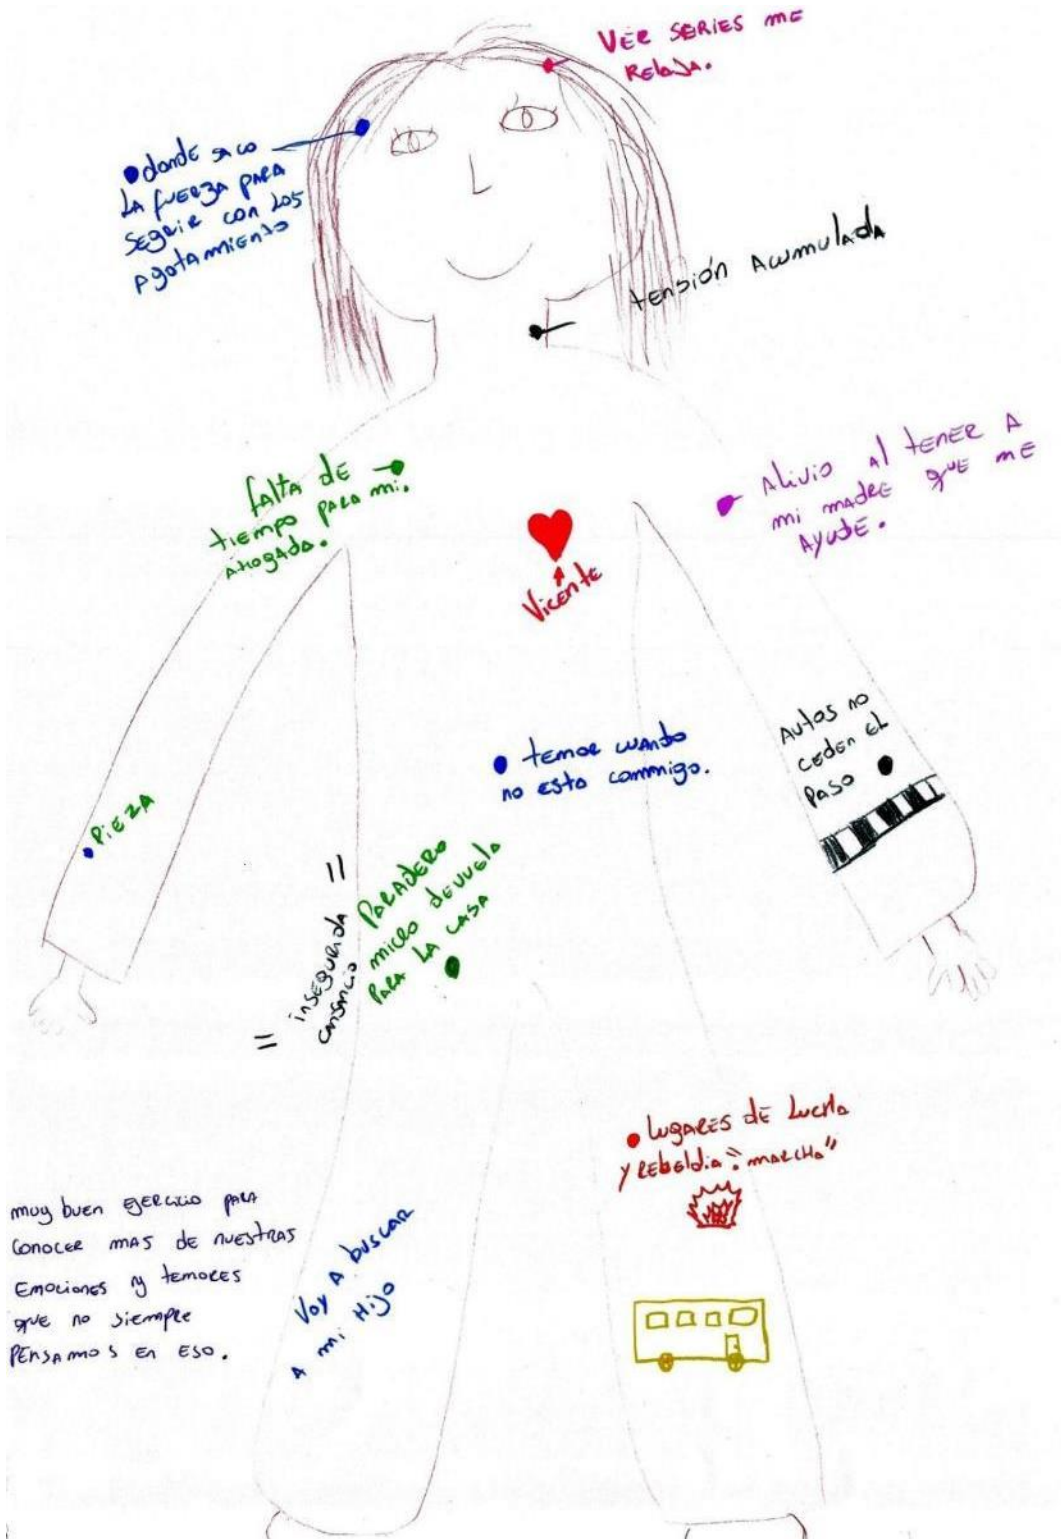 VER SERIES ME
RELAJA.
donde saco
LA fUERZA PARA
SEGUIR CON LOS
AgotAmiento
tensión Acumulada
falta de
tiempo PARA mi.
AHOGADA.
Alivio al tener A
mi madre que me
AYUDE.
Vicente
temor cuando
no esta commigo.
Autos no
ceden el
paso
PIEZA
PARADERO
micro devuelo
PARA LA CASA
insegurida
cansancio
LugARES de Lucha
y Rebeldia "marcha"
muy buen EJERCICIO PARA
Conocer mas de nuestras
Emociones y temores
que no siempre
PENSAMOS EN ESO.
Voy A buscar
A mi Hijo